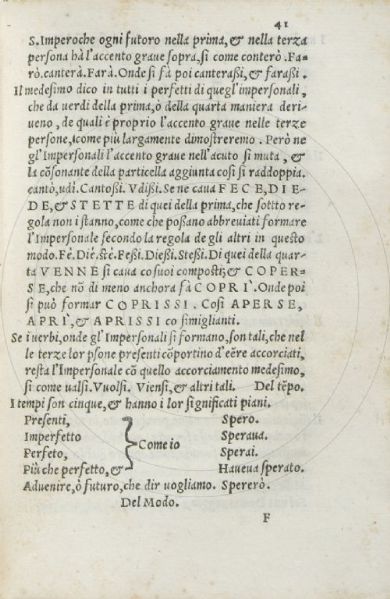 41
S. Imperoche ogni futoro nella prima, & nella terza
persona hà l'accento graue sopra, si come conterò. Fa-
rò. canterà. Farà. Onde si fà poi canterassi, & farassi.
Il medesimo dico in tutti i perfetti di quegl'impersonali,
che da uerdi della prima, ò della quarta maniera deri-
ueno, de quali è proprio l'accento graue nelle terze
persone, icome più largamente dimostreremo. Però ne
gl'Impersonali l'accento graue nell'acuto si muta, &
la cõsonante della particella aggiunta così si raddoppia.
cantò, udì. Cantossi. Vdissi. Se ne caua FECE, DIE
DE, & STETTE di quei della prima, che sottito re-
gola non istanno, come che possano abbreuiati formare
l'Impersonale secondo la regola de gli altri in questo
modo. Fé. Dié, sté. Fessi. Diessi. Stessi. Di quei della quar-
ta VENNE si caua co suoi composti; & COPER-
SE, che nõ di meno anchora fà COPRÌ. Onde poi
si può formar COPRISSI. Così APERSE,
APRÌ, & APRISSI co simiglianti.
Se i uerbi, onde gl'Impersonali si formano, son tali, che nel
le terze lor psone presenti cõportino d'eẽre accorciati,
resta l'Impersonale cõ quello accorciamento medesimo,
si come ualsi. Vuolsi. Viensi, & altri tali. Del tẽpo.
I tempi son cinque, & hanno i lor significati piani.
Presenti, Spero.
Imperfetto Speraua.
Come io
Perfeto, Sperai.
Più che perfetto, & Haueua sperato.
Aduenire, ò futuro, che dir uogliamo. Spererò.
Del Modo.
F